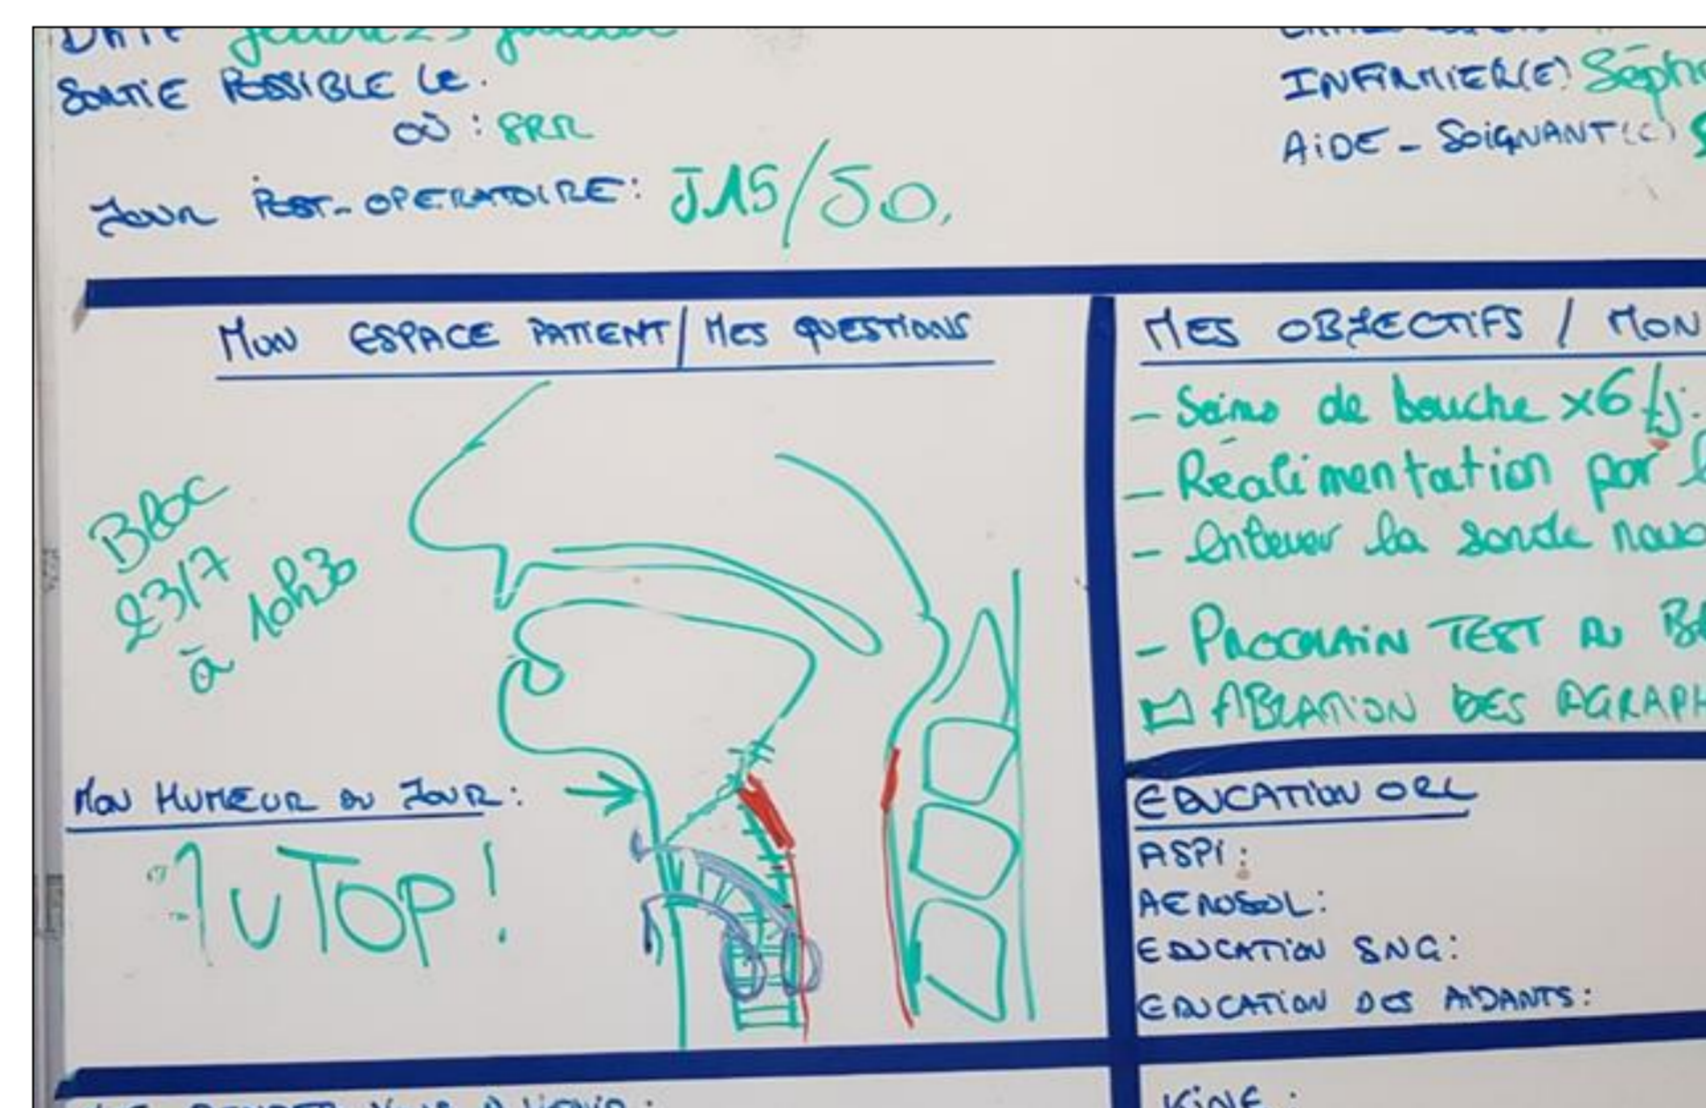 DATE jeudi 23 juillet
SORTIE POSSIBLE LE.
OÙ : SRR
JOUR POST-OPERATOIRE: J15/J0.
INFIRMIER(E)
AIDE-SOIGNANT(E)
MON ESPACE PATIENT / MES QUESTIONS
BLOC
23/7
à 10h30
MON HUMEUR DU JOUR:
TOP!
MES OBJECTIFS / MON
- Soins de bouche x6/j.
- Réalimentation par
- Enlever la sonde naso
- PROCHAIN TEST AU
ABLATION DES AGRAPH
EDUCATION ORL
ASPI:
AEROSOL:
EDUCATION SNG:
EDUCATION DES AIDANTS:
KINE: